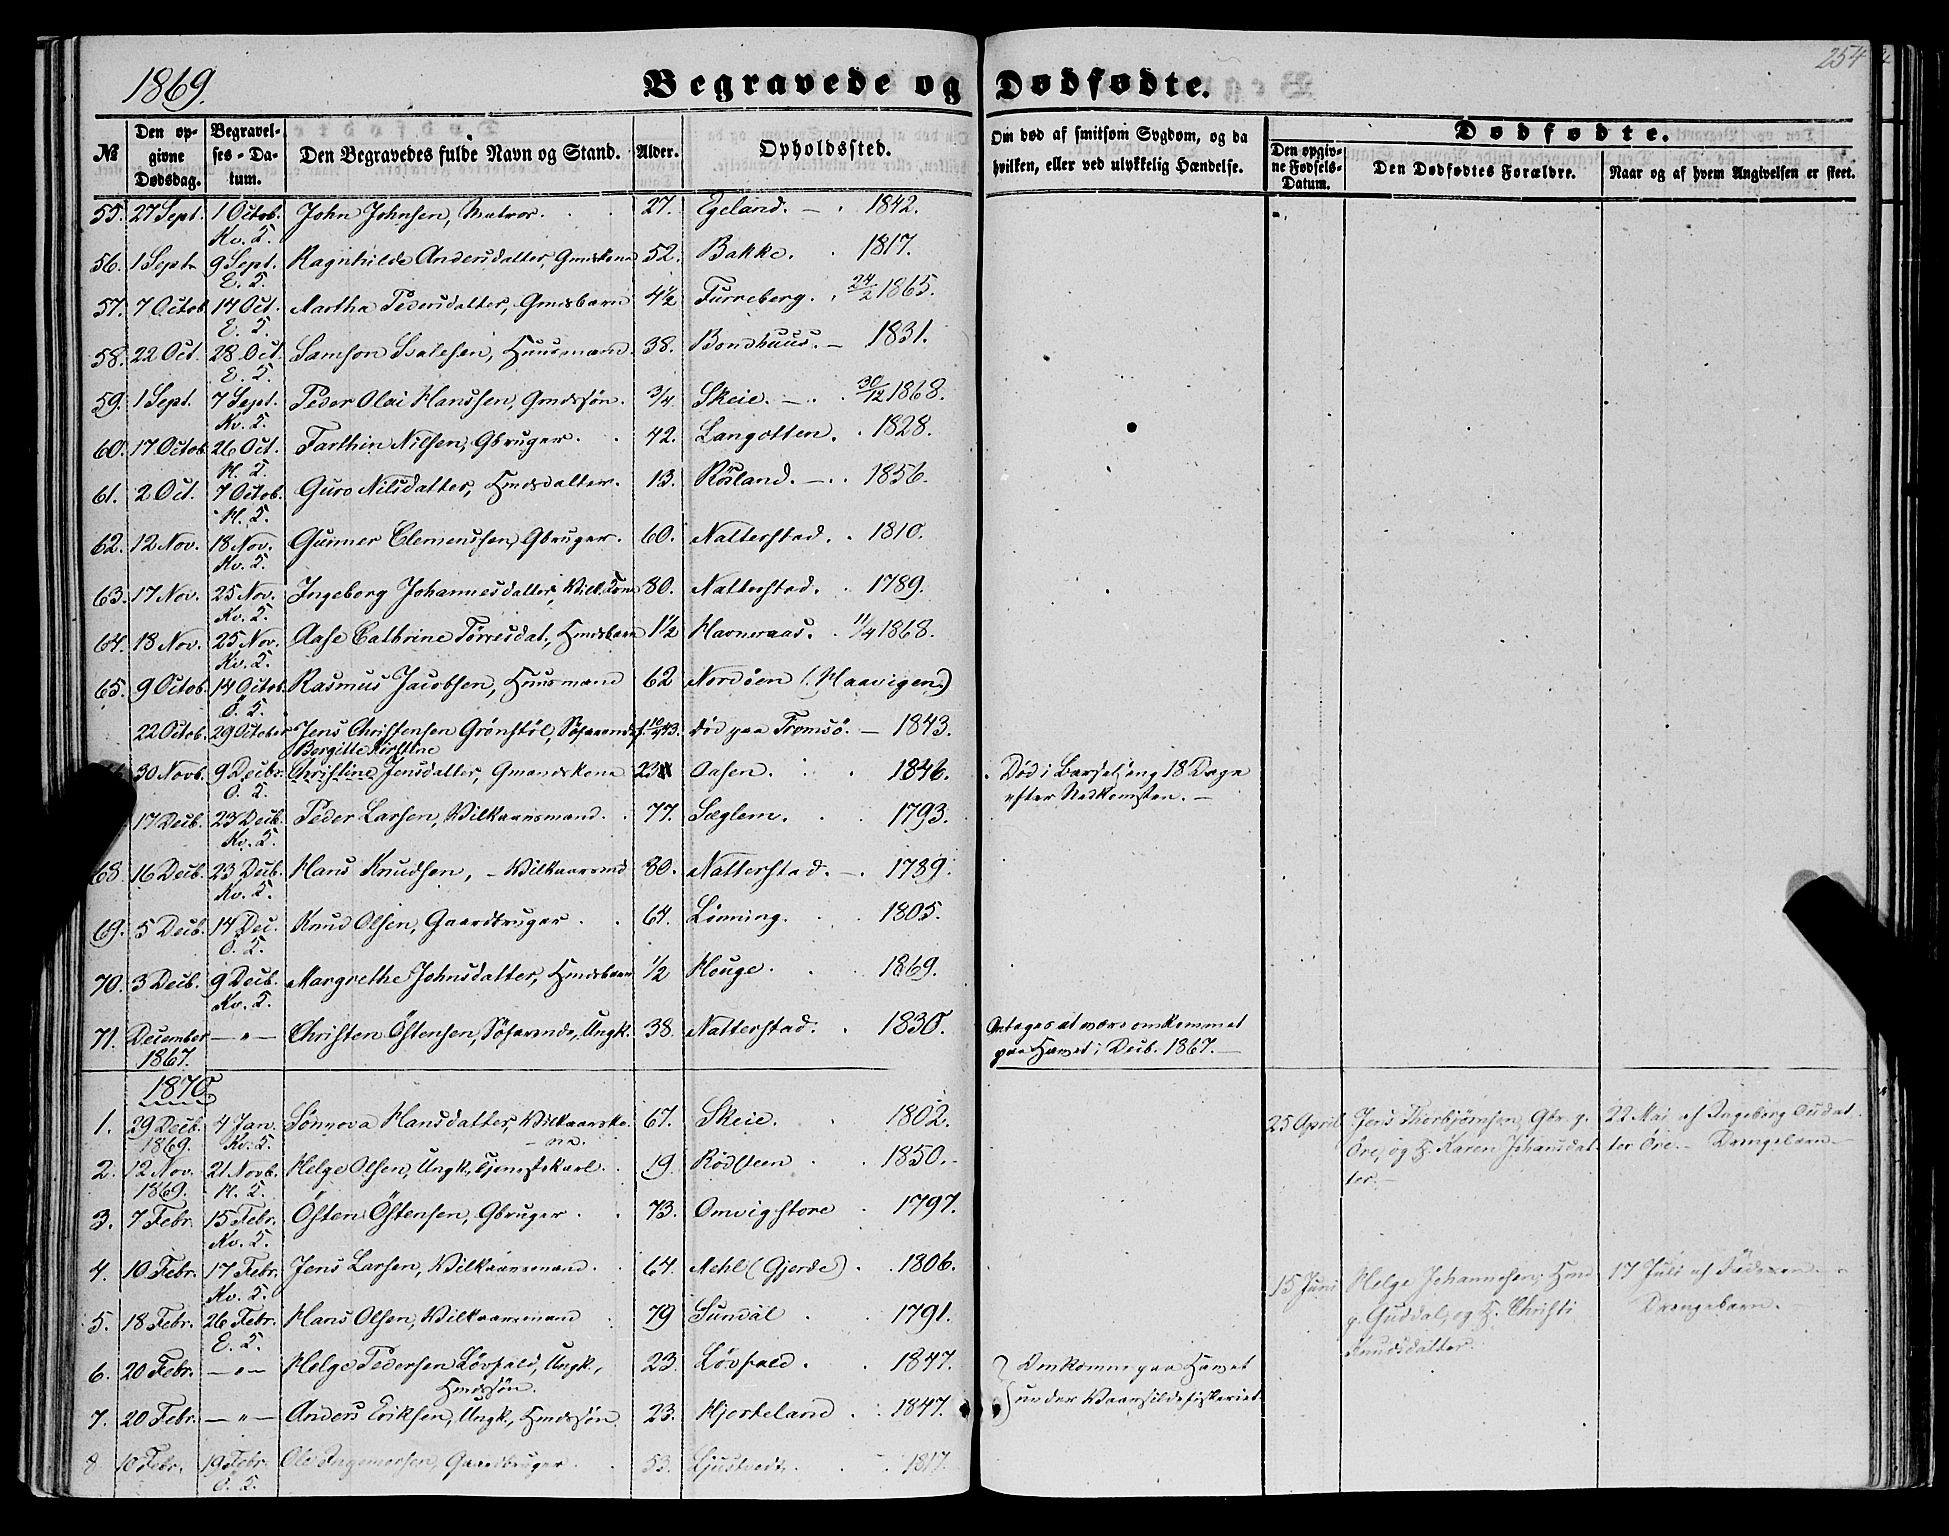 254
1869.
Begravede og Dødfødte.
№
Den opgivne Dødsdag.
Begravelses-Datum.
Den Begravedes fulde Navn og Stand.
Alder.
Opholdssted.
Om død af smitsom Sygdom, og da hvilken, eller ved ulykkelig Hændelse.
Dødfødte.
Den opgivne Fødsels-Datum.
Den Dødfødtes Forældre.
Naar og af hvem Angivelsen er skeet.
55. 27 Sept. 1 Octob. John Johnsen, 27. Egeland. — 1842.
Kv. S.
56. 1 Sept. 9 Sept. Ragnhilde Andersdatter, Gmdskone 52. Bakke. 1817.
E. S.
57. 7 Octob. 14 Oct. Martha Pedersdatter, Gmdsbarn 4½ Furreberg. 24/2 1865.
E. S.
58. 22 Oct. 28 Oct. Samson Huusmand. 38. Bondhuus. — 1831.
E. S.
59. 1 Sept. 7 Sept. Peder Olai Hanssen, Gmdssøn. 3/4. Skeie. — 30/12 1868.
Kv. S.
60. 17 Octob. 26 Oct. Farthin Nilsen, Gbruger. 42. Langotten. 1828.
H. S.
61. 2 Oct. 7 Octob. Guro Nilsdatter, Hmdsdatter. 13. Røsland. — 1856.
H. S.
62. 12 Nov. 18 Nov. Gunner Clemenssen, Gbruger. 60. Natterstad. 1810.
Kv. S.
63. 17 Nov. 25 Nov. Ingeborg Johannesdatter, Vilk.kone 80. Natterstad. 1789.
Kv. S.
64. 18 Nov. 25 Nov. Aase Cathrine Tørresdat., Hmdsbarn 1½ Havneraas. 11/4 1868.
Kv. S.
65. 9 Octob. 14 Octob. Rasmus Jacobsen, Huusmand 62 Nordøen (Haavigen.)
Ö. S.
22 Octob. 29 October Jens Christensen Grønstøl, Søfarende død paa Tromsö. — 1843.
Bergitte Kirstine
30 Novb. 9 Decbr. Christine Jensdatter, Gmandskone 23 Aasen. 1846. Død i Barselseng 18 Dage
Ö. S. efter Nedkomsten. —
17 Decb. 23 Decb. Peder Larsen, Vilkaarsmand. 77. Sæglem. 1793.
Kv. S.
68. 16 Decb. 23 Decb. Hans Knudsen, — Vilkaarsmd 80. Natterstad. — 1789.
Kv. S.
69. 5 Decb. 14 Dec. Knud Olsen, Gaardbruger. 64. Lønning. 1805.
Ö. S.
70. 3 Decb. 9 Decb. Margrethe Johnsdatter, Hmdsbarn ½ Houge. 1869.
Kv. S.
71. December — " — Christen Östensen, Søfarende, Ungk. 38. Natterstad. 1830. Antages at være omkommet
1867. paa Havet i Decb. 1867. —
1870
1. 29 Decb. 4 Jan. Sønnova Hansdatter, Vilkaarsko- 67. Skeie. 1802. 25 April Jens Thorbjørnsen, Gbr. p. 22 Mai af Ingeborg
1869. Kv. S. ne. Øre, og H. Karen Johansdat- ter Øre. — Drengebarn —
2. 12 Nov. 21 Novb. Helge Olsen, Ungk., Tjenestekarl. 19. Rødsteen 1850. ter. —
1869. H. S.
3. 7 Febr. 15 Febr. Östen Östensen, Gbruger. 73. Omvigstore 1797.
Kv. S.
4. 10 Febr. 17 Febr. Jens Larsen, Vilkaarsmand. 64. Mehl (Gjerde) 1806. 15 Juni Helge Johannesen, Hmd 17 Juli af Faderen. —
Kv. S.
5. 18 Febr. 26 Febr. Hans Olsen, Vilkaarsmand 79 Sundal 1791. p. Guddal, og H. Christi Drengebarn. —
E. S. Knudsdatter.
6. 20 Febr. — " — Helge Pedersen Løvfald, Ungk., 23. Løvfald. 1847. Omkomne paa Havet
Hmdssøn.
7. 20 Febr. — " — Anders Eriksen, Ungk., Hmdssøn. 23. Hjorteland 1847. under Vaarsildefiskeriet
8. 10 Febr. 19 Febr. Ole Ingemorsen, Gaardbruger. 53. Ljustvedt. 1817.
Ö. S.